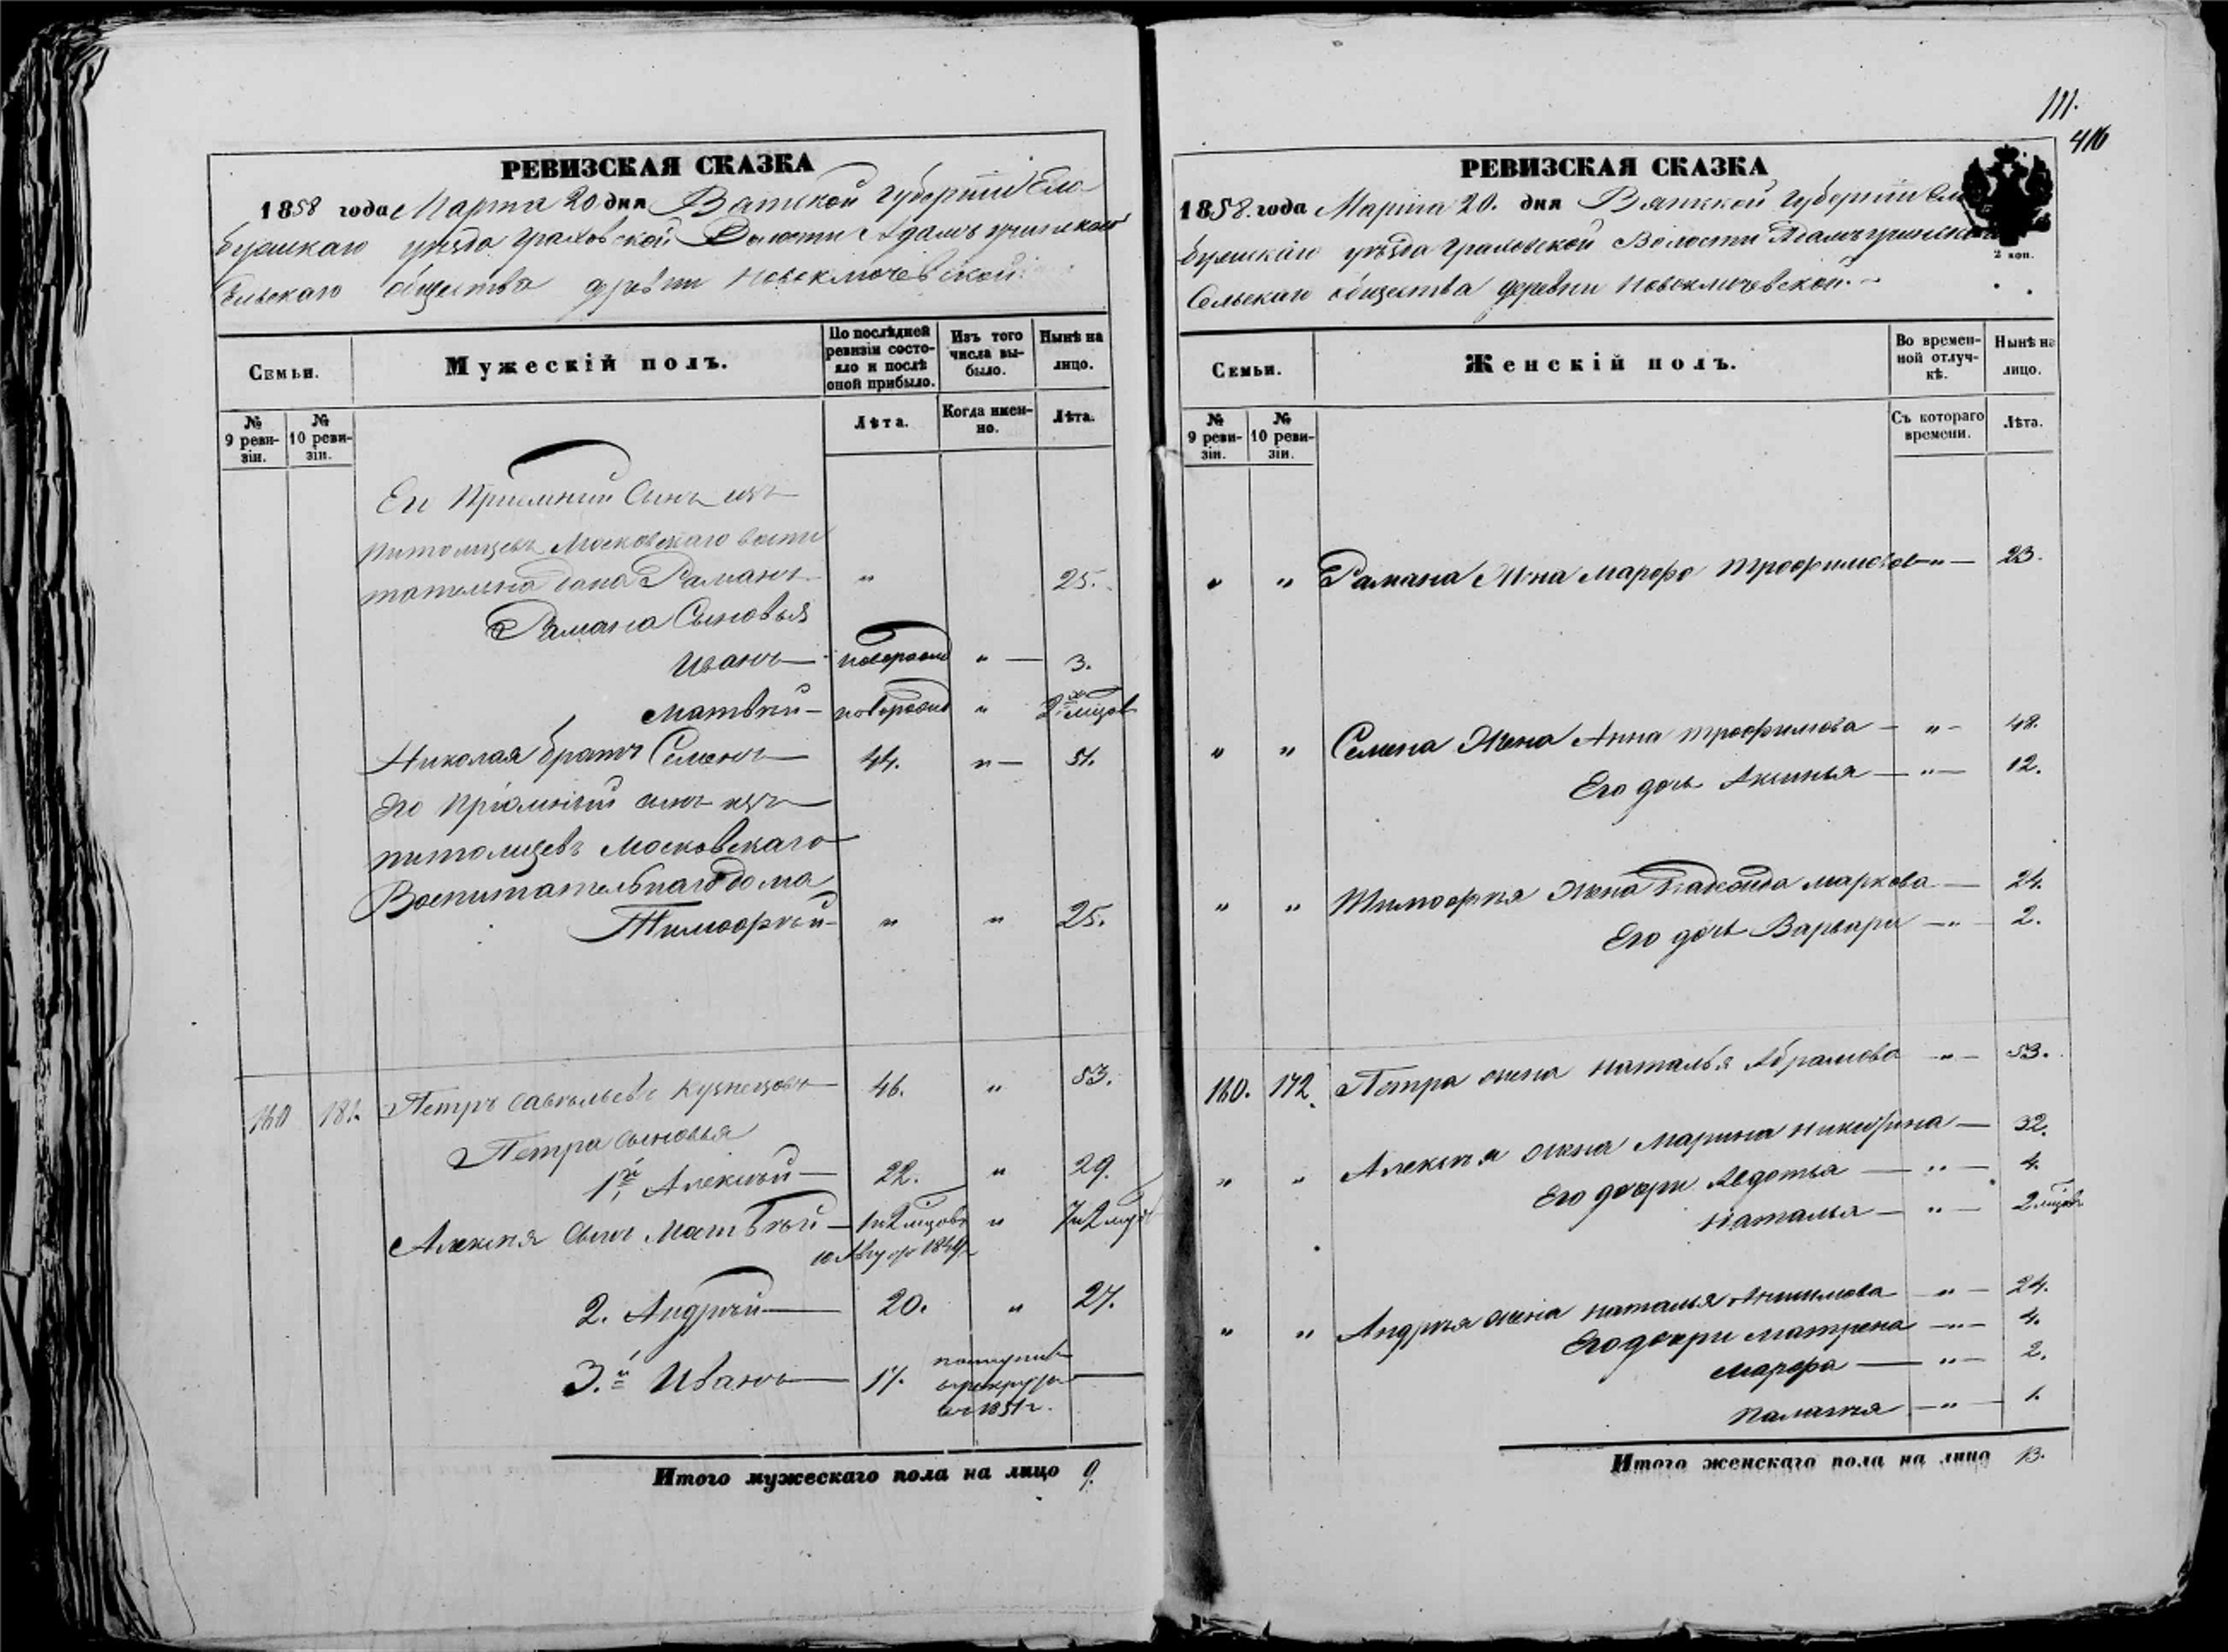 РЕВИЗСКАЯ СКАЗКА
1858 года Марта 20 дня Вятской Губернiи Ела-
бужскаго уѣзда Граховской Волости Адамъучинскаго
Сельскаго общества дрѣвни Новоключевской
Семьи.
Мужескій полъ.
По послѣдней ревизіи состояло и послѣ оной прибыло.
Изъ того числа выбыло.
Нынѣ на лицо.
№ 9 ревизіи.
№ 10 ревизіи.
Лѣта.
Когда именно.
Лѣта.
Его Приемный Сынъ изъ
питомцевъ Московскаго воспи
тательна дома Раманъ " 25.
Рамана Сыновья
Иванъ — новорожд " — 3.
Матвѣй — новорожд " 2 мѣсцов
Николая братъ Семенъ — 44. " — 51.
Его Пріомный сынъ изъ
питомцевъ Московскаго
Воспитательнаго дома
Тимофѣй — " " 25.
160 181. Петръ Савѣльевъ Кузнецовъ 46. " 53.
Петра Сыновья
1й Алексѣй — 22. " 29.
Алексѣя Сынъ Матвѣй — 1 и 2 мѣсцовъ " 7 и 2
2. Андрѣй — 20. " 27.
3.й Иванъ — 17. поступилъ
в рекруты
въ 1851 г.
Итого мужескаго пола на лицо 9.
111.
416
РЕВИЗСКАЯ СКАЗКА
1858. года Марта 20. дня Вятской Губернiи Ела
бужскаго уѣзда Граховской Волости Адамъучинскаго
2 коп.
Сельскаго общества деревни Новоключевской. —
Семьи.
Женскій полъ.
Во временной отлучкѣ.
Нынѣ на лицо.
№ 9 ревизіи.
№ 10 ревизіи.
Съ котораго времени.
Лѣта.
" " Рамана Жена Марфа Трофимова — " — 23.
" " Семена Жена Анна Трофимова — " — 48.
Его дочь Аксинья — " — 12.
" " Тимофѣя Жена Маркова — 24.
Его дочь Варвара — " — 2.
160. 172. Петра жена Наталья Абрамова — " — 53.
" " Алексѣя жена Марина Никифрина — 32.
Его дочри Авдотья — " — 4.
Наталья — " — 2 мѣсцов
" " Андрѣя жена Наталья Анисимова — " — 24.
Его дочри Матрена — " — 4.
Марфа — " — 2.
Палагѣя — " — 1.
Итого женскаго пола на лицо 13.